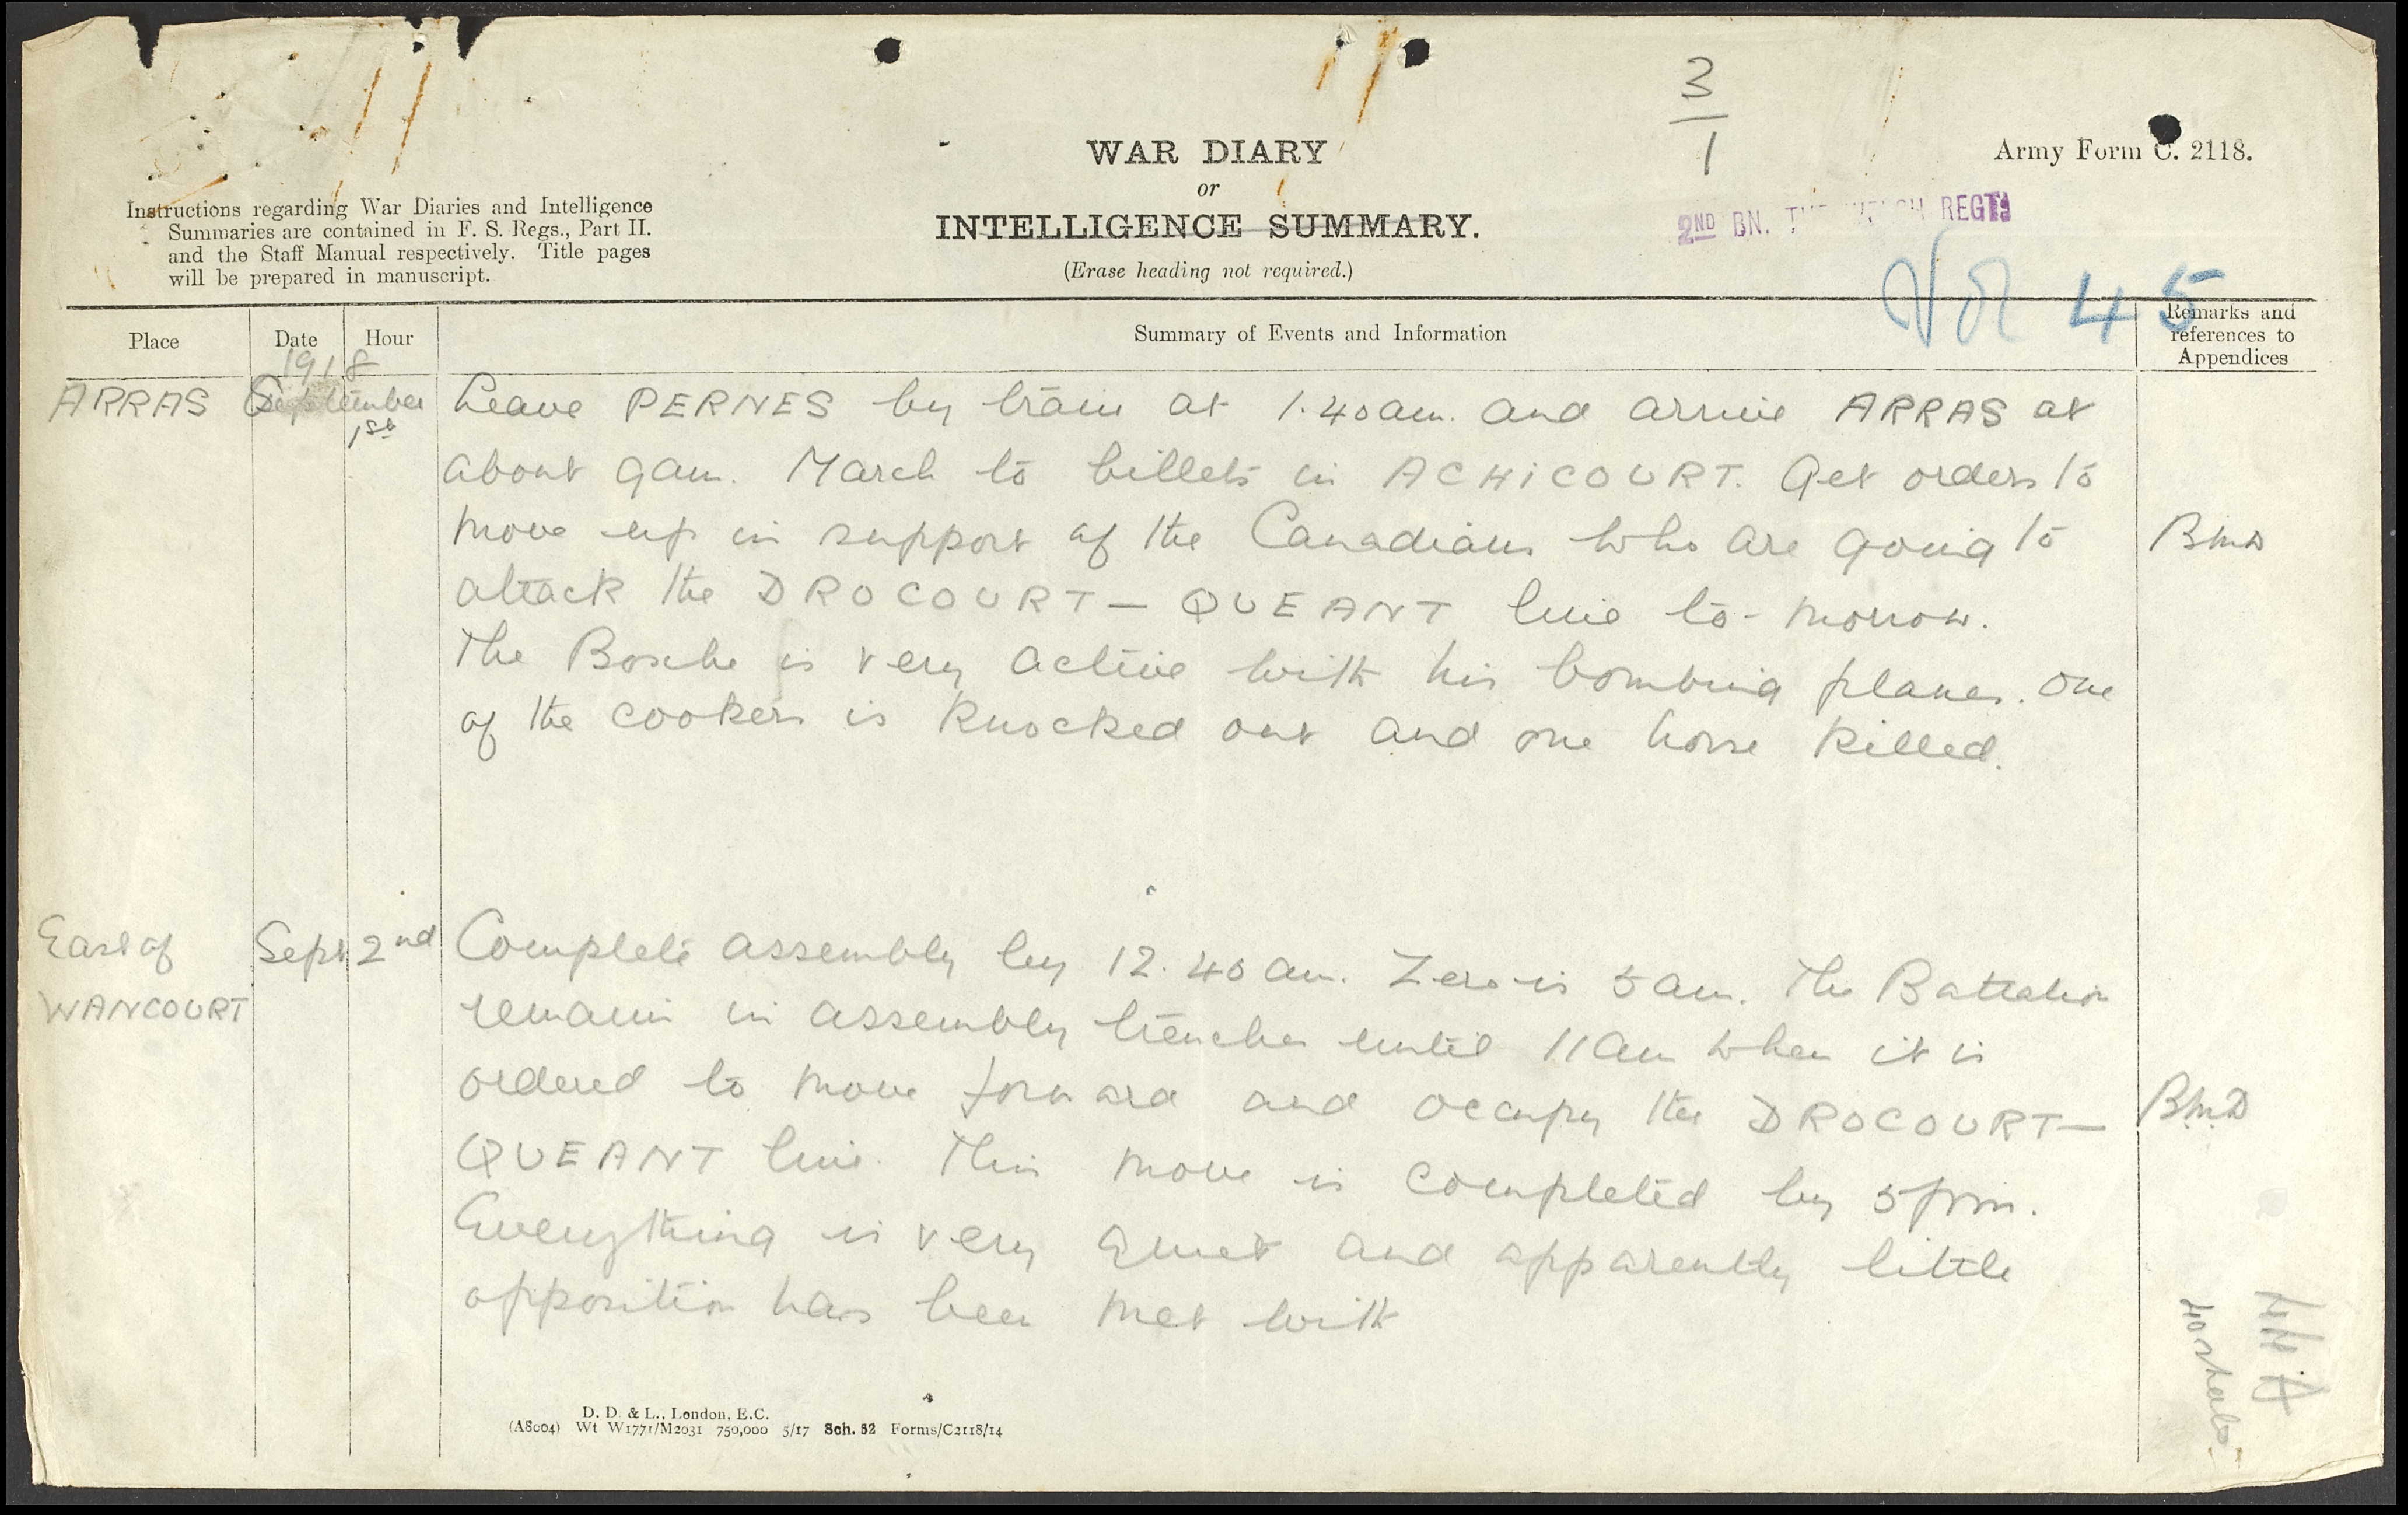 3
1
WAR DIARY
or
INTELLIGENCE SUMMARY.
(Erase heading not required.)
Army Form C. 2118.
Instructions regarding War Diaries and Intelligence
Summaries are contained in F. S. Regs., Part II.
and the Staff Manual respectively. Title pages
will be prepared in manuscript.
2ND BN. THE WELCH REGT.
Vol 45
Place
Date
Hour
Summary of Events and Information
Remarks and
references to
Appendices
1918
ARRAS September Leave PERNES by train at 1.40am. and arrive ARRAS at
1st
about 9am. March to billets in ACHICOURT. Get orders to
move up in support of the Canadians who are going to
attack the DROCOURT - QUEANT line to-morrow.
The Bosche is very active with his bombing planes. One
of the cookers is knocked out and one horse killed.
East of Sept 2nd Complete assembly by 12.40 am. Zero is 5 am. The Battalion
WANCOURT remain in assembly trenches until 11am when it is
ordered to move forward and occupy the DROCOURT- BmD
QUEANT line. This move is completed by 5pm.
Everything is very quiet and apparently little
opposition has been met with
D. D. & L., London, E.C.
(A8004) Wt W1771/M2031 750,000 5/17 Sch. 52 Forms/C2118/14